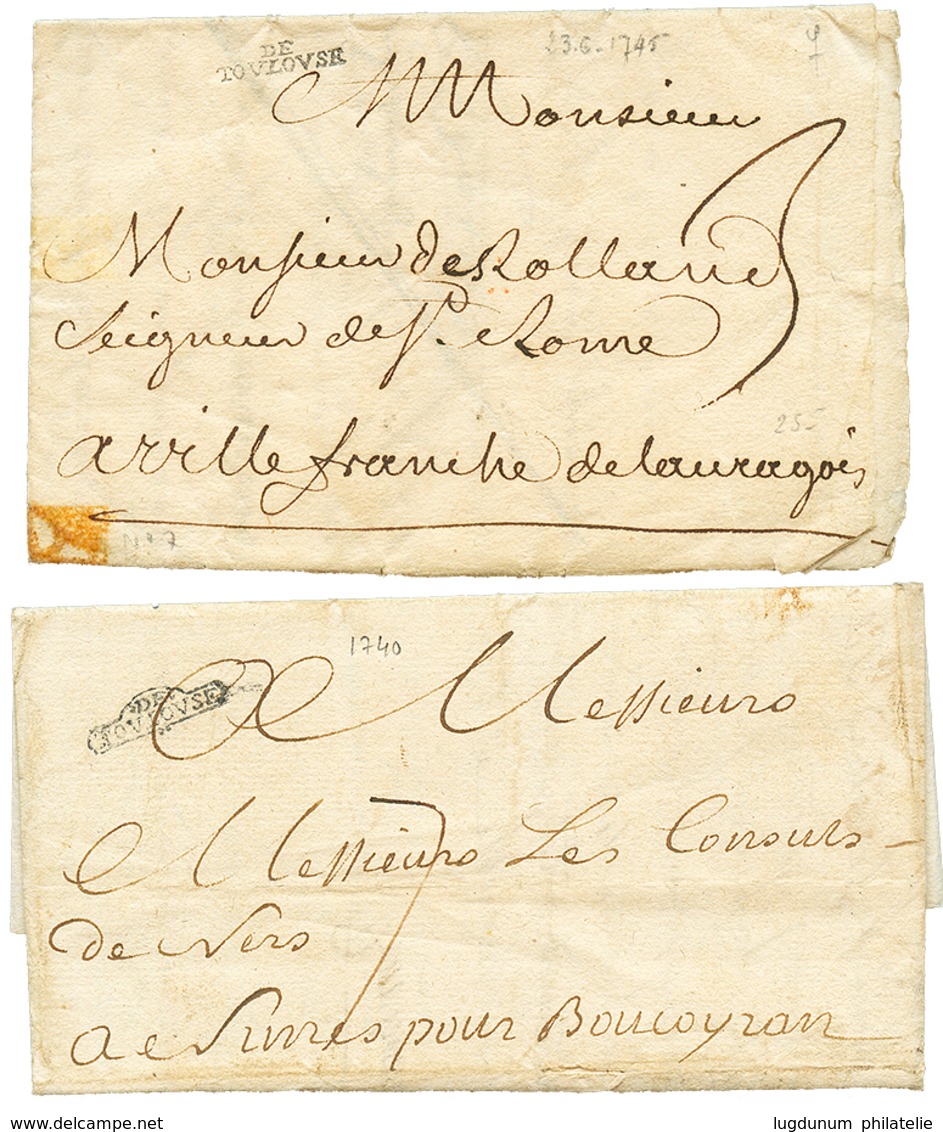 DE
TOVLOVSE
23.6.1745
Monsieur
Monsieur de Rolland
Seigneur de St. Rome
3
25-
a ville franche de lauragois
N° 7
1740
DE
TOVLOVSE
Messieurs
Messieurs Les Consuls
7
de Ners
A Nimes pour Boucoyran
www.delcampe.net
lugdunum philatelie